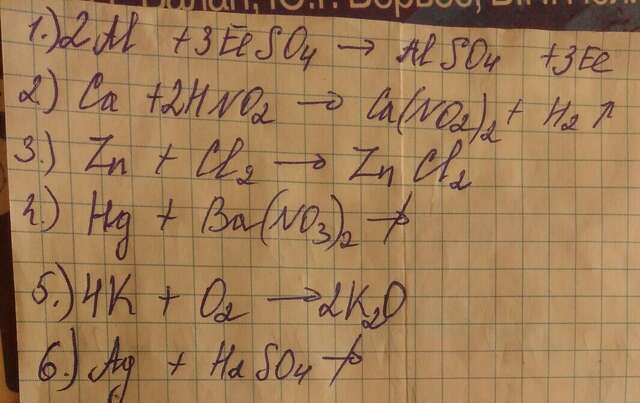 1.) 2Al + 3FeSO4 → AlSO4 + 3Fe
2) Ca + 2HNO2 → Ca(NO2)2 + H2 ↑
3.) Zn + Cl2 → ZnCl2
4.) Hg + Ba(NO3)2 ↛
5.) 4K + O2 → 2K2O
6.) Ag + H2SO4 ↛